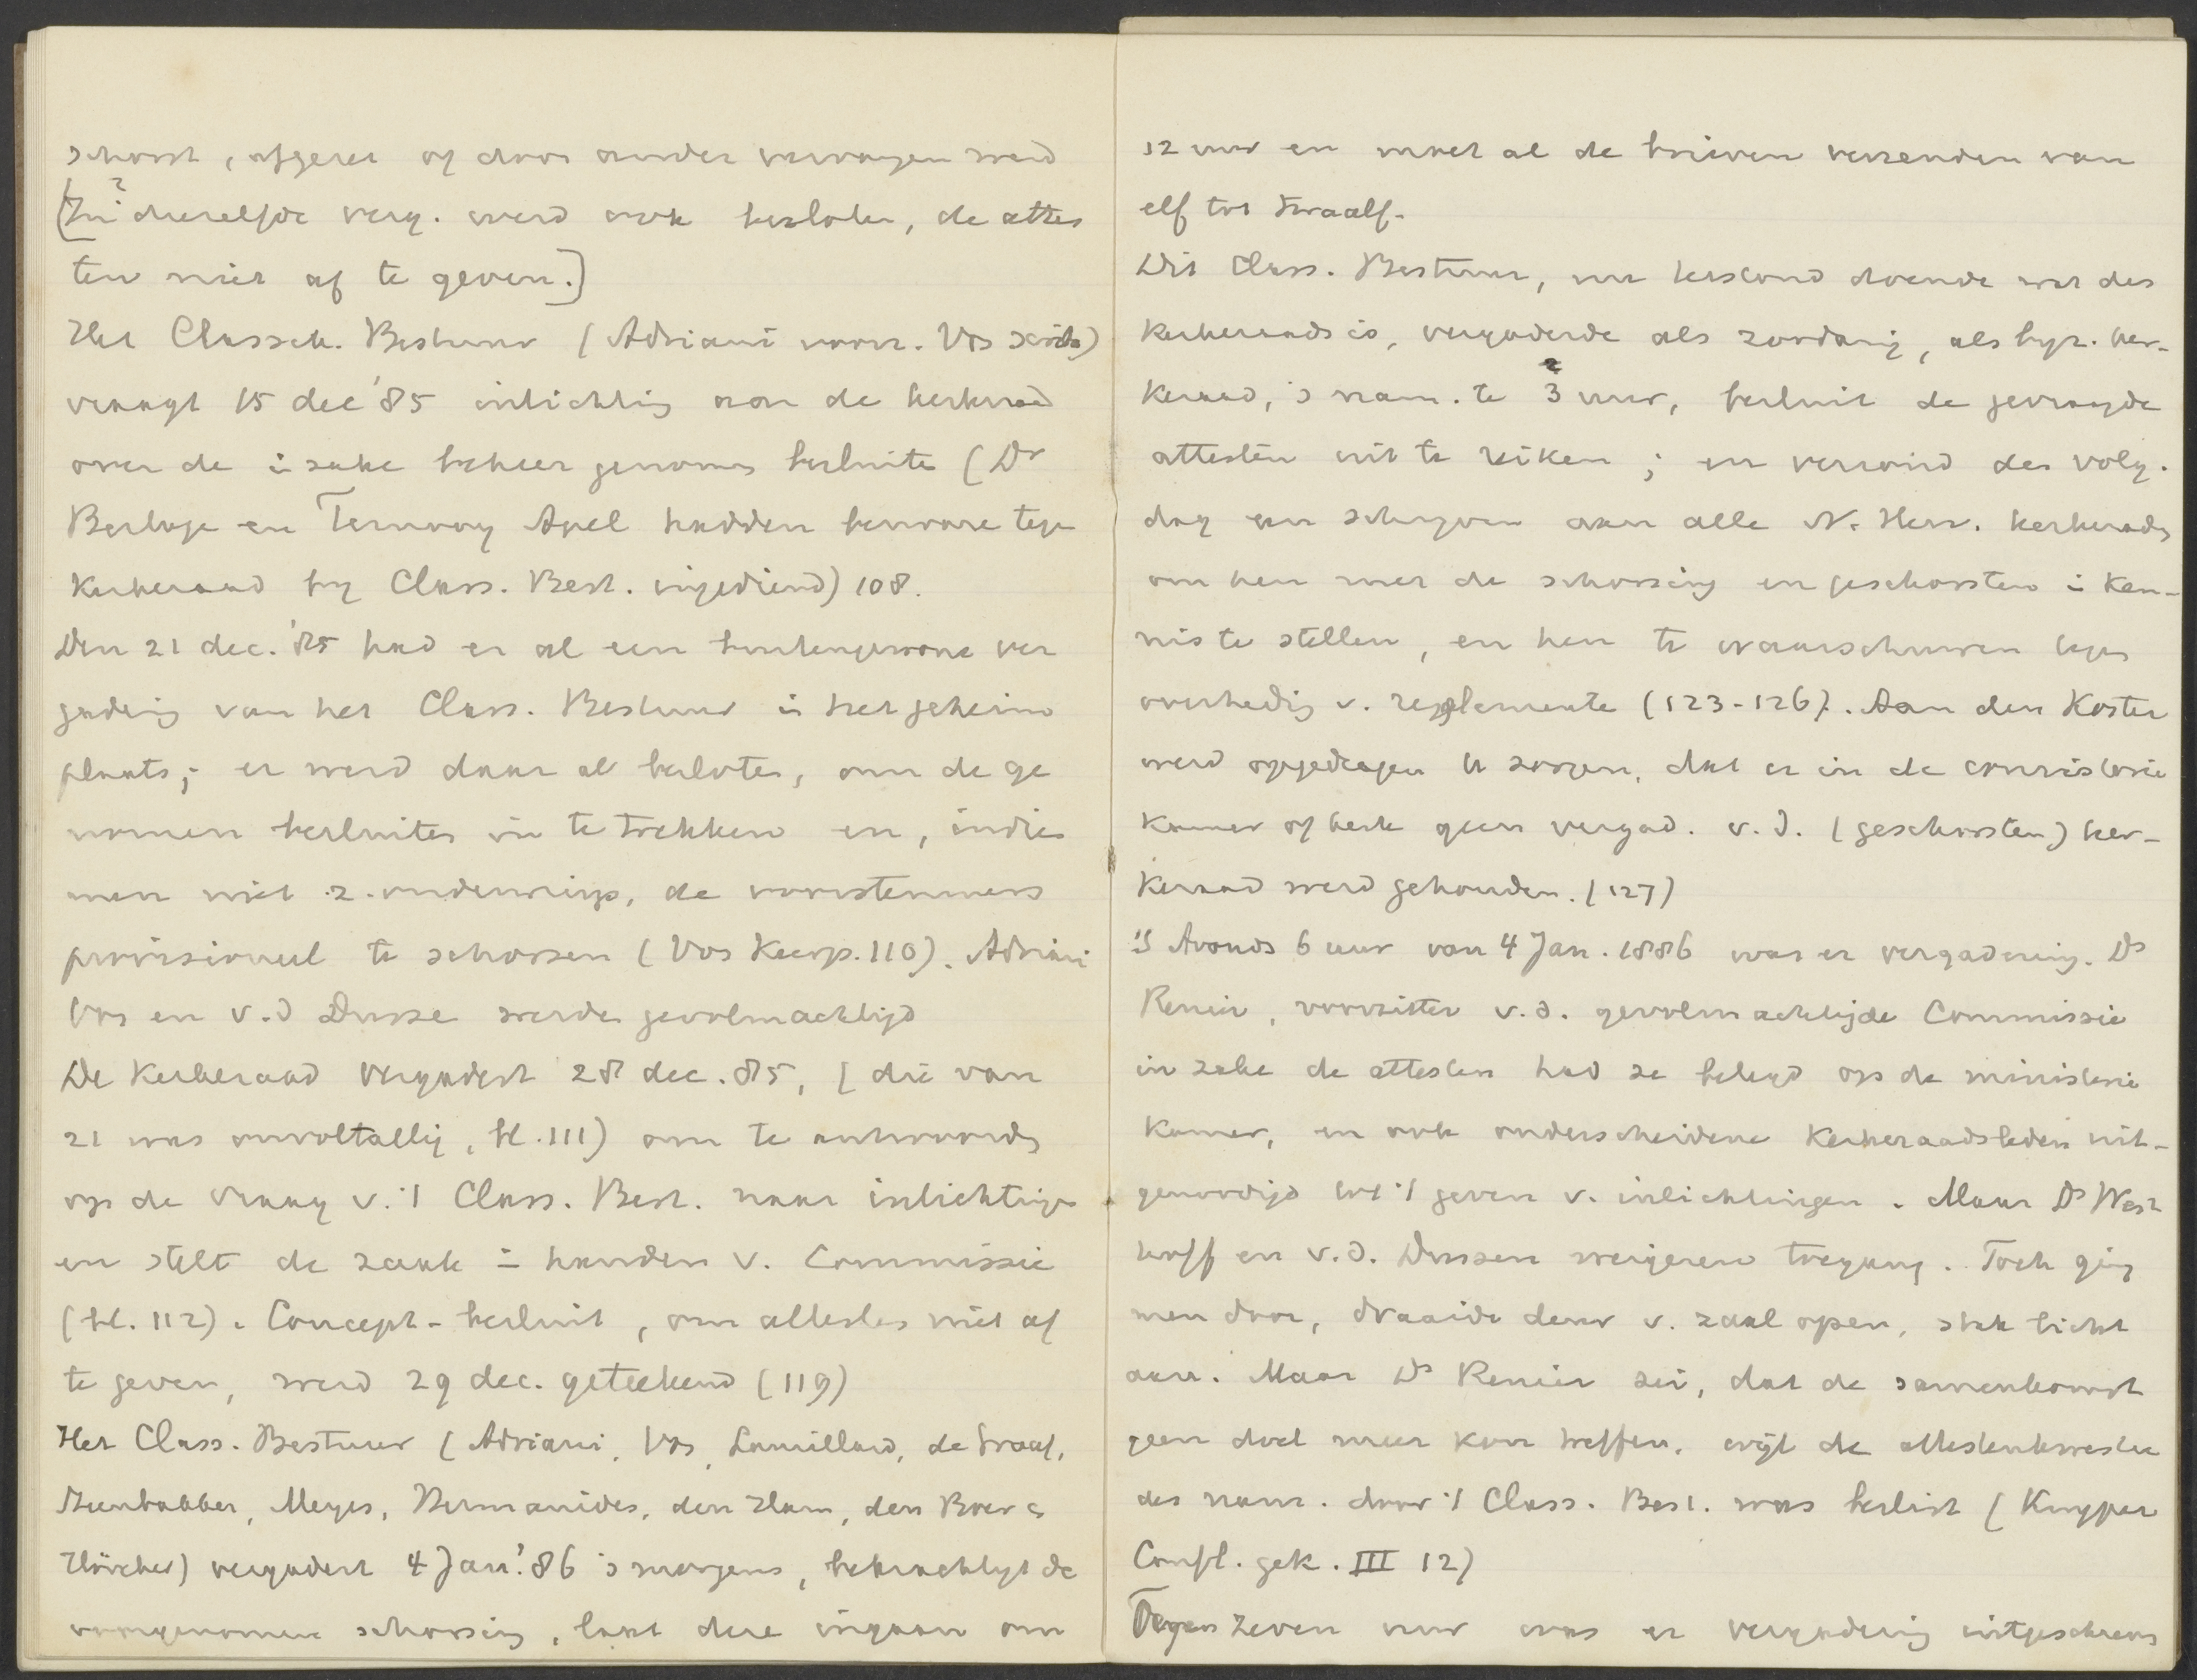 schorst, afgezet of door ander vervangen werd
(In dezelfde verg. werd ook besloten, de attes
ten niet af te geven.]
Het Classch. Bestuur (Adriani voorz. Vos scriba)
vraagt 15 dec '85 inlichting aan de kerkeraad
over de in zake beheer genomen besluiten (Dr
Berlage en Ternooy Apel hadden bezwaren tegen
Kerkeraad by Class. Best. ingediend) 108.
Den 21 dec. '85 had er al een buitengewone ver
gadering van het Class. Bestuur in het geheim
plaats; er werd daar al besloten, om de ge
nomen besluiten in te trekken en, indien
men niet z. onderwierp, de voorstemmers
provisioneel te schorsen (Vos Keerp. 110). Adriani
Vos en v.d Dusse werden gevolmachtigd
De Kerkeraad vergadert 28 dec. 85, [die van
21 was onvoltallig, bl. 111) om te antwoorden
op de vraag v. 't Class. Best. naar inlichtingen
en stelt de zaak in handen v. Commissie
(bl. 112). Concept-besluit, om attesten niet af
te geven, werd 29 dec. geteekend (119)
Het Class. Bestuur (Adriani, Vos, Lamillard, de Graaf,
Steenbakker, Meyes, Hermanides, den Ham, den Boer en
Hörcher) vergadert 4 Jan. '86 's morgens, bekrachtigt de
voorgenomen schorsing, laat deze ingaan om
12 uur en moet al de brieven verzenden van
elf tot twaalf.
Dit Class. Bestuur, nu terstond doende wat des
Kerkeraads is, vergaderde als zoodanig, als byz. ker-
keraad, 's nam. te 2 3 uur, besluit de gevraagde
attesten uit te reiken; en verzond des volg.
dag een schryven aan alle N. Herv. kerkeraden
om hen met de schorsing en geschorsten in ken-
nis te stellen, en hen te waarschuwen tegen
overtreding v. reglementen (123-126). Aan den Koster
werd opgedragen te zorgen, dat er in de consistorie
kamer of kerk geen vergad. v. d. (geschorsten) ker-
keraad werd gehouden. (127)
's Avonds 6 uur van 4 Jan. 1886 was er vergadering. Ds
Renier, voorzitter v. d. gevolmachtigde Commissie
in zake de attesten had ze belegd op de ministerie
kamer, en ook onderscheidene Kerkeraadsleden uit-
genoodigd tot 't geven v. inlichtingen. Maar Ds West
hoff en v.d. Dussen weigeren toegang. Toch ging
men door, draaide deur v. zaal open, stak licht
aan. Maar Ds Renier zei, dat de samenkomst
geen doel meer kon treffen, wyl de attestenkwestie
des nam. door 't Class. Best. was beslist (Kuyper
Confl. gek. III 12)
Tegen zeven uur was er vergadering uitgeschreven